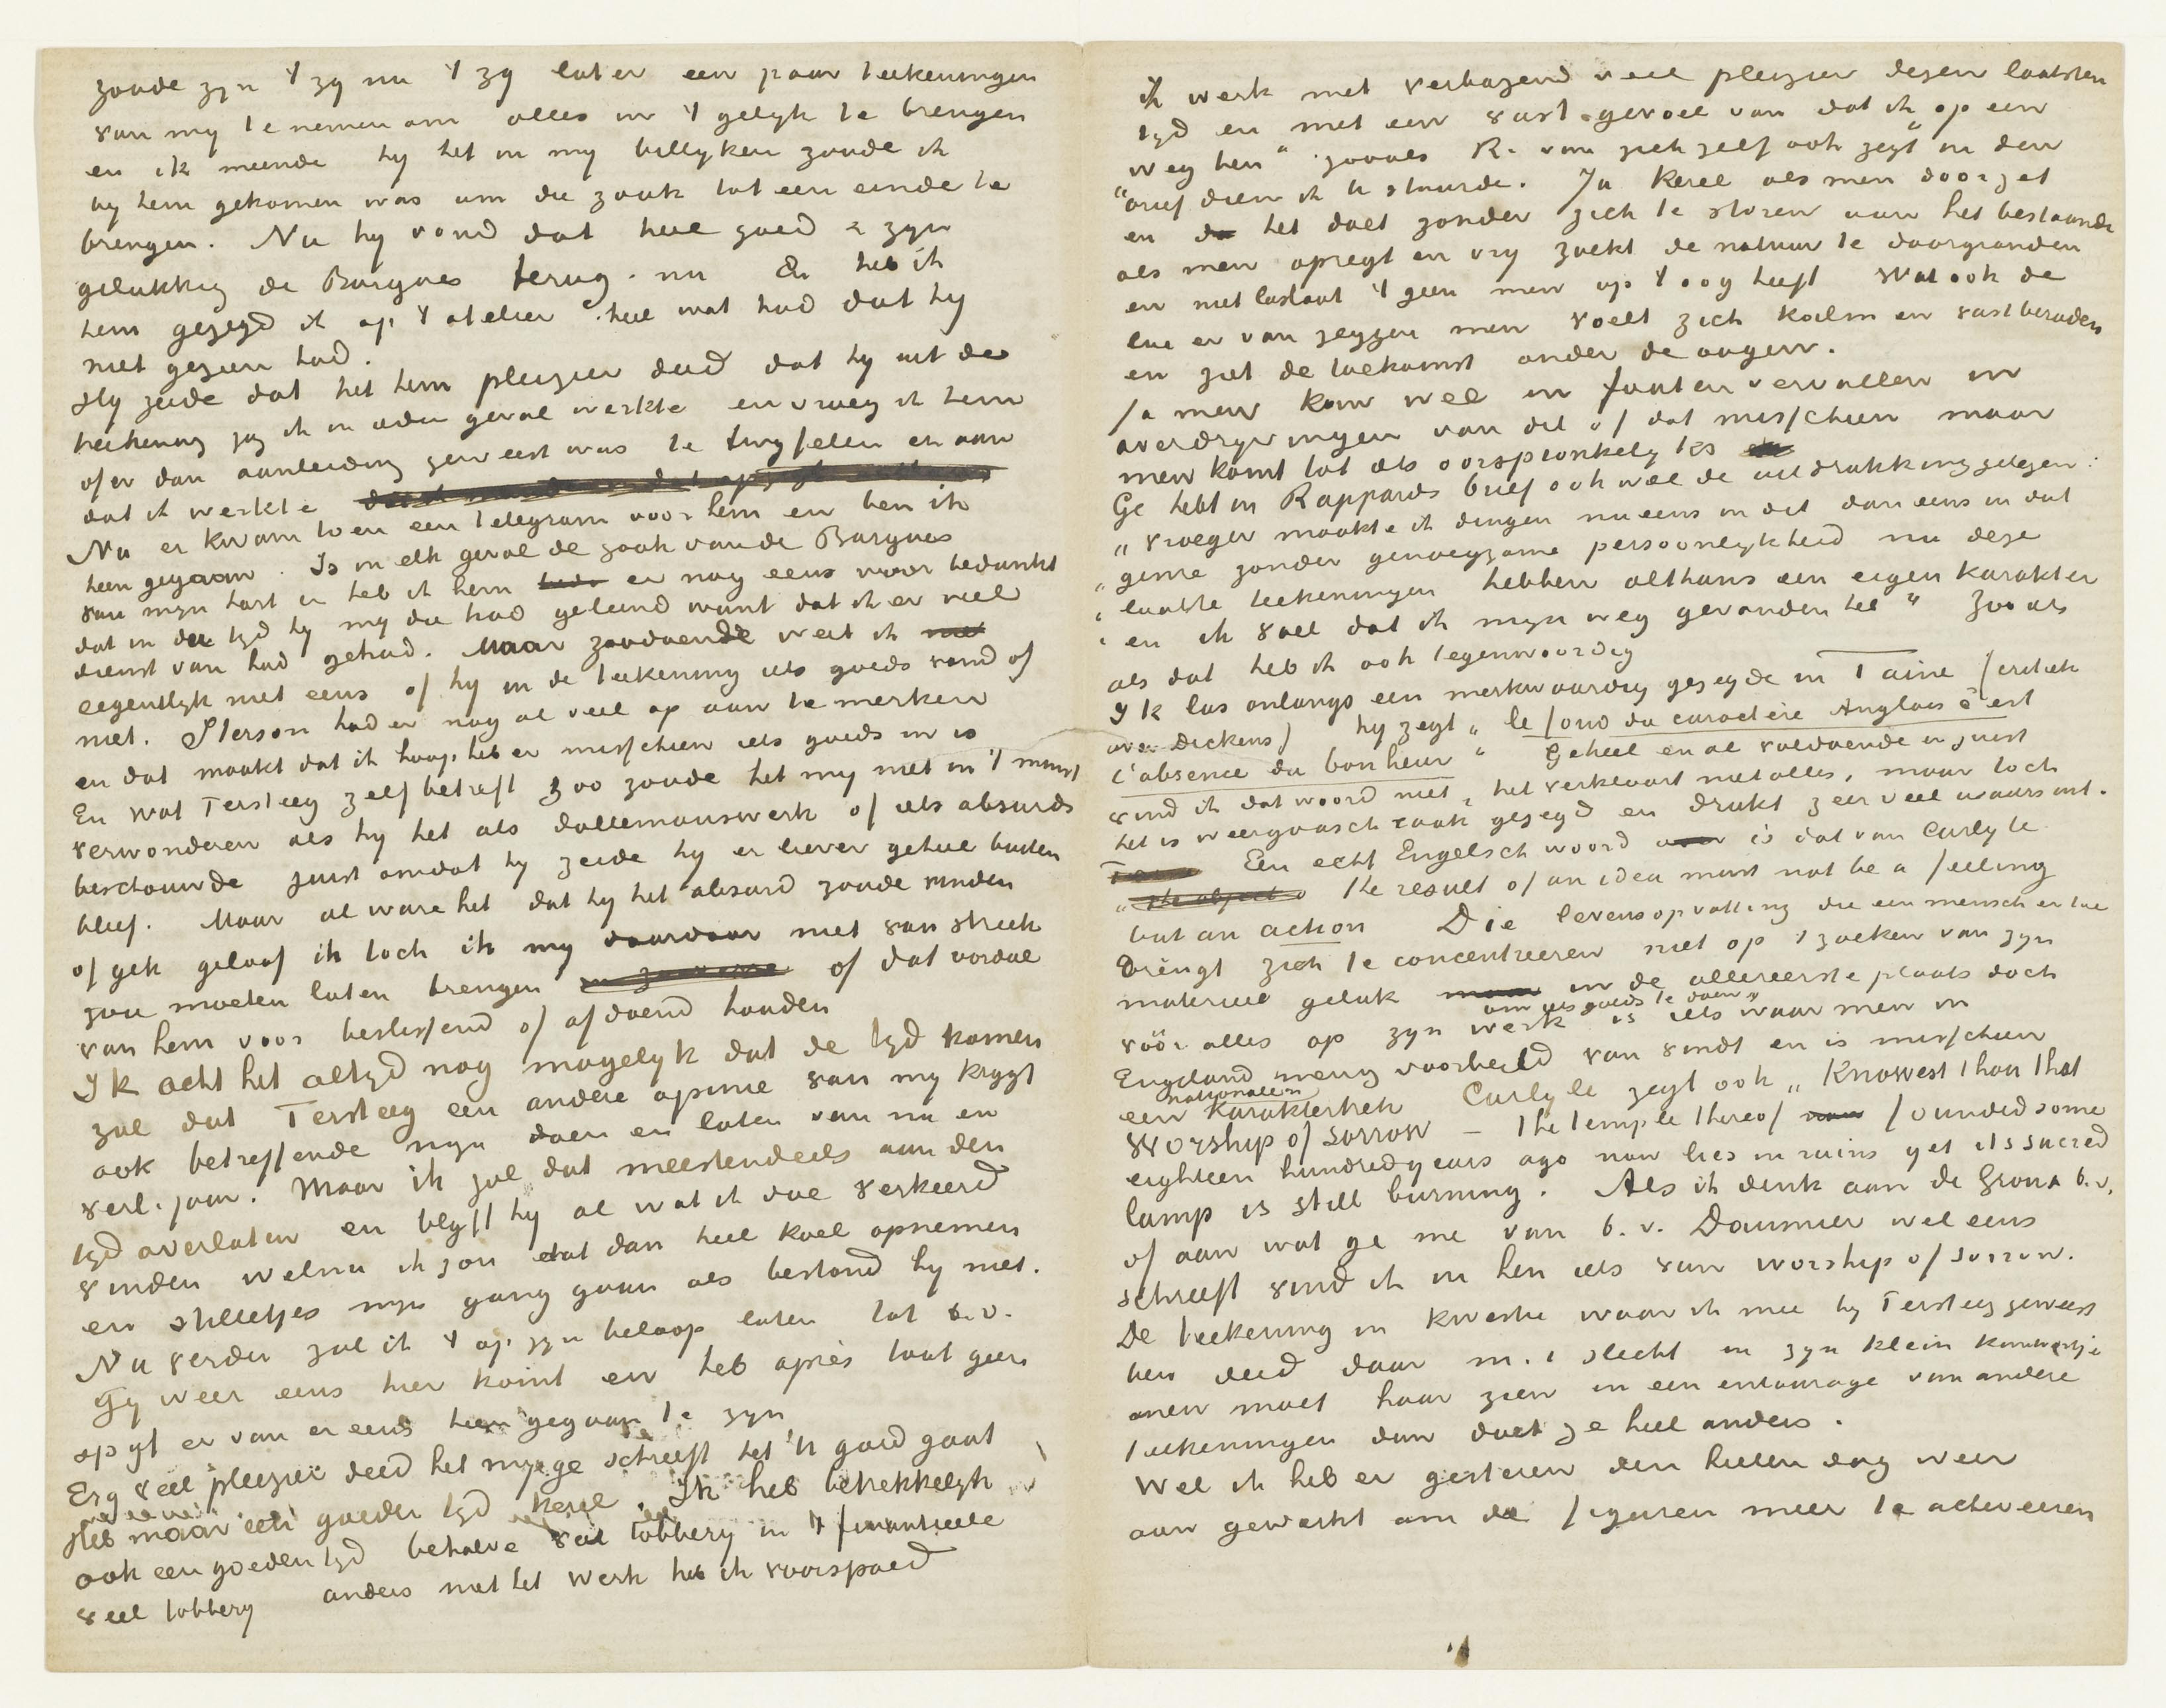 zoude zyn 't zy nu 't zy later een paar teekeningen
van my te nemen om alles in 't gelyk te brengen
en ik meende hy het in my billyken zoude ik
by hem gekomen was om die zaak tot een einde te
brengen. Nu hy vond dat heel goed & zyn
gelukkig de Bargues terug. nu En heb ik
hem gezegd ik op 't atelier heel wat had dat hy
niet gezien had.
Hy zeide dat het hem pleizier deed dat hy uit de
teekening zag ik in ieder geval werkte en vroeg ik hem
of er dan aanleiding geweest was te twyfelen er aan
dat ik werkte
Nu er kwam toen een telegram voor hem en ben ik
heen gegaan. Is in elk geval de zaak van de Bargues
van myn hart en heb ik hem er nog eens voor bedankt
dat in die tyd hy my die had geleend want dat ik er veel
dienst van had gehad. Maar zoodoende weet ik
eigentlyk niet eens of hy in de teekening iets goeds vond of
niet. Pterson had er nog al veel op aan te merken
en dat maakt dat ik hoop heb er misschien iets goeds in is
En wat Tersteeg zelf betreft zoo zoude het my niet in 't minst
verwonderen als hy het als dollemanswerk of iets absurds
beschouwde juist omdat hy zeide hy er liever geheel buiten
bleef. Maar al ware het dat hy het absurd zoude vinden
of gek geloof ik toch ik my daardoor niet van streek
zou moeten laten brengen of dat oordeel
van hem voor beslissend of afdoend houden
Ik acht het altyd nog mogelyk dat de tyd komen
zal dat Tersteeg een andere opinie van my krygt
ook betreffende myn doen en laten van nu en
verl. jaar. Maar ik zal dat meestendeels aan den
tyd overlaten en blyft hy al wat ik doe verkeerd
vinden welnu ik zou dat dan heel koel opnemen
en stilletjes myn gang gaan als bestond hy niet.
Nu verder zal ik 't op zyn beloop laten tot b.v.
Gy weer eens hier komt en heb après tout geen
spyt er van er eens heen gegaan te zyn
Erg veel pleizier deed het my ge schreeft het U goed gaat
Heb maar een goeden tyd kerel. Ik heb betrekkelyk
ook een goeden tyd behalve veel tobbery in 't finantieele
veel tobbery anders met het werk heb ik voorspoed
ik werk met verbazend veel pleizier dezen laatsten
tyd en met een vast gevoel van dat ik "op een
weg ben" zooals R. van zich zelf ook zegt in den
brief dien ik U stuurde. Ja kerel als men doorzet
en het doet zonder zich te storen aan het bestaande
als men opregt en vry zoekt de natuur te doorgronden
en niet loslaat 't geen men op 't oog heeft wat ook de
lui er van zeggen men voelt zich kalm en vastberaden
en ziet de toekomst onder de oogen.
Ja men kan wel in fouten vervallen in
overdryvingen van dit of dat misschien maar
men komt tot iets oorspronkelyks
Ge hebt in Rappards brief ook wel de uitdrukking gelezen:
„vroeger maakte ik dingen nu eens in dit dan eens in dat
„genre zonder genoegzame persoonlykheid nu deze
„laatste teekeningen hebben althans een eigen karakter
„en ik voel dat ik myn weg gevonden heb" Zoo als
als dat heb ik ook tegenwoordig
Ik las onlangs een merkwaardig gezegde in Taine (critiek
over Dickens) hy zegt „le fond du caractère Anglais c'est
l'absence du bonheur" Geheel en al voldoende en juist
vind ik dat woord niet, het verklaart niet alles, maar toch
het is weergaasch raak gezegd en drukt zeer veel waars uit.
Een echt Engelsch woord is dat van Carlyle
„the result of an idea must not be a feeling
but an action Die levensopvatting die een mensch er toe
brengt zich te concentreeren niet op 't zoeken van zyn
materieel geluk in de allereerste plaats doch
vóór alles op zyn werk om iets goeds te doen, is iets waar men in
Engeland menig voorbeeld van vindt en is misschien
een nationalen karaktertrek Carlyle zegt ook „Knowest thou that
Worship of sorrow – the temple thereof founded some
eighteen hundred years ago now lies in ruins yet its sacred
lamp is still burning. Als ik denk aan de Groux b.v.
of aan wat ge me van b.v. Daumier wel eens
schreeft vind ik in hen iets van worship of sorrow.
De teekening in kwestie waar ik mee by Tersteeg geweest
ben deed daar m.i slecht in zyn klein kamertje
men moet haar zien in een entourage van andere
teekeningen dan doet ze heel anders.
Wel ik heb er gisteren den heelen dag weer
aan gewerkt om de figuren meer te acheveeren